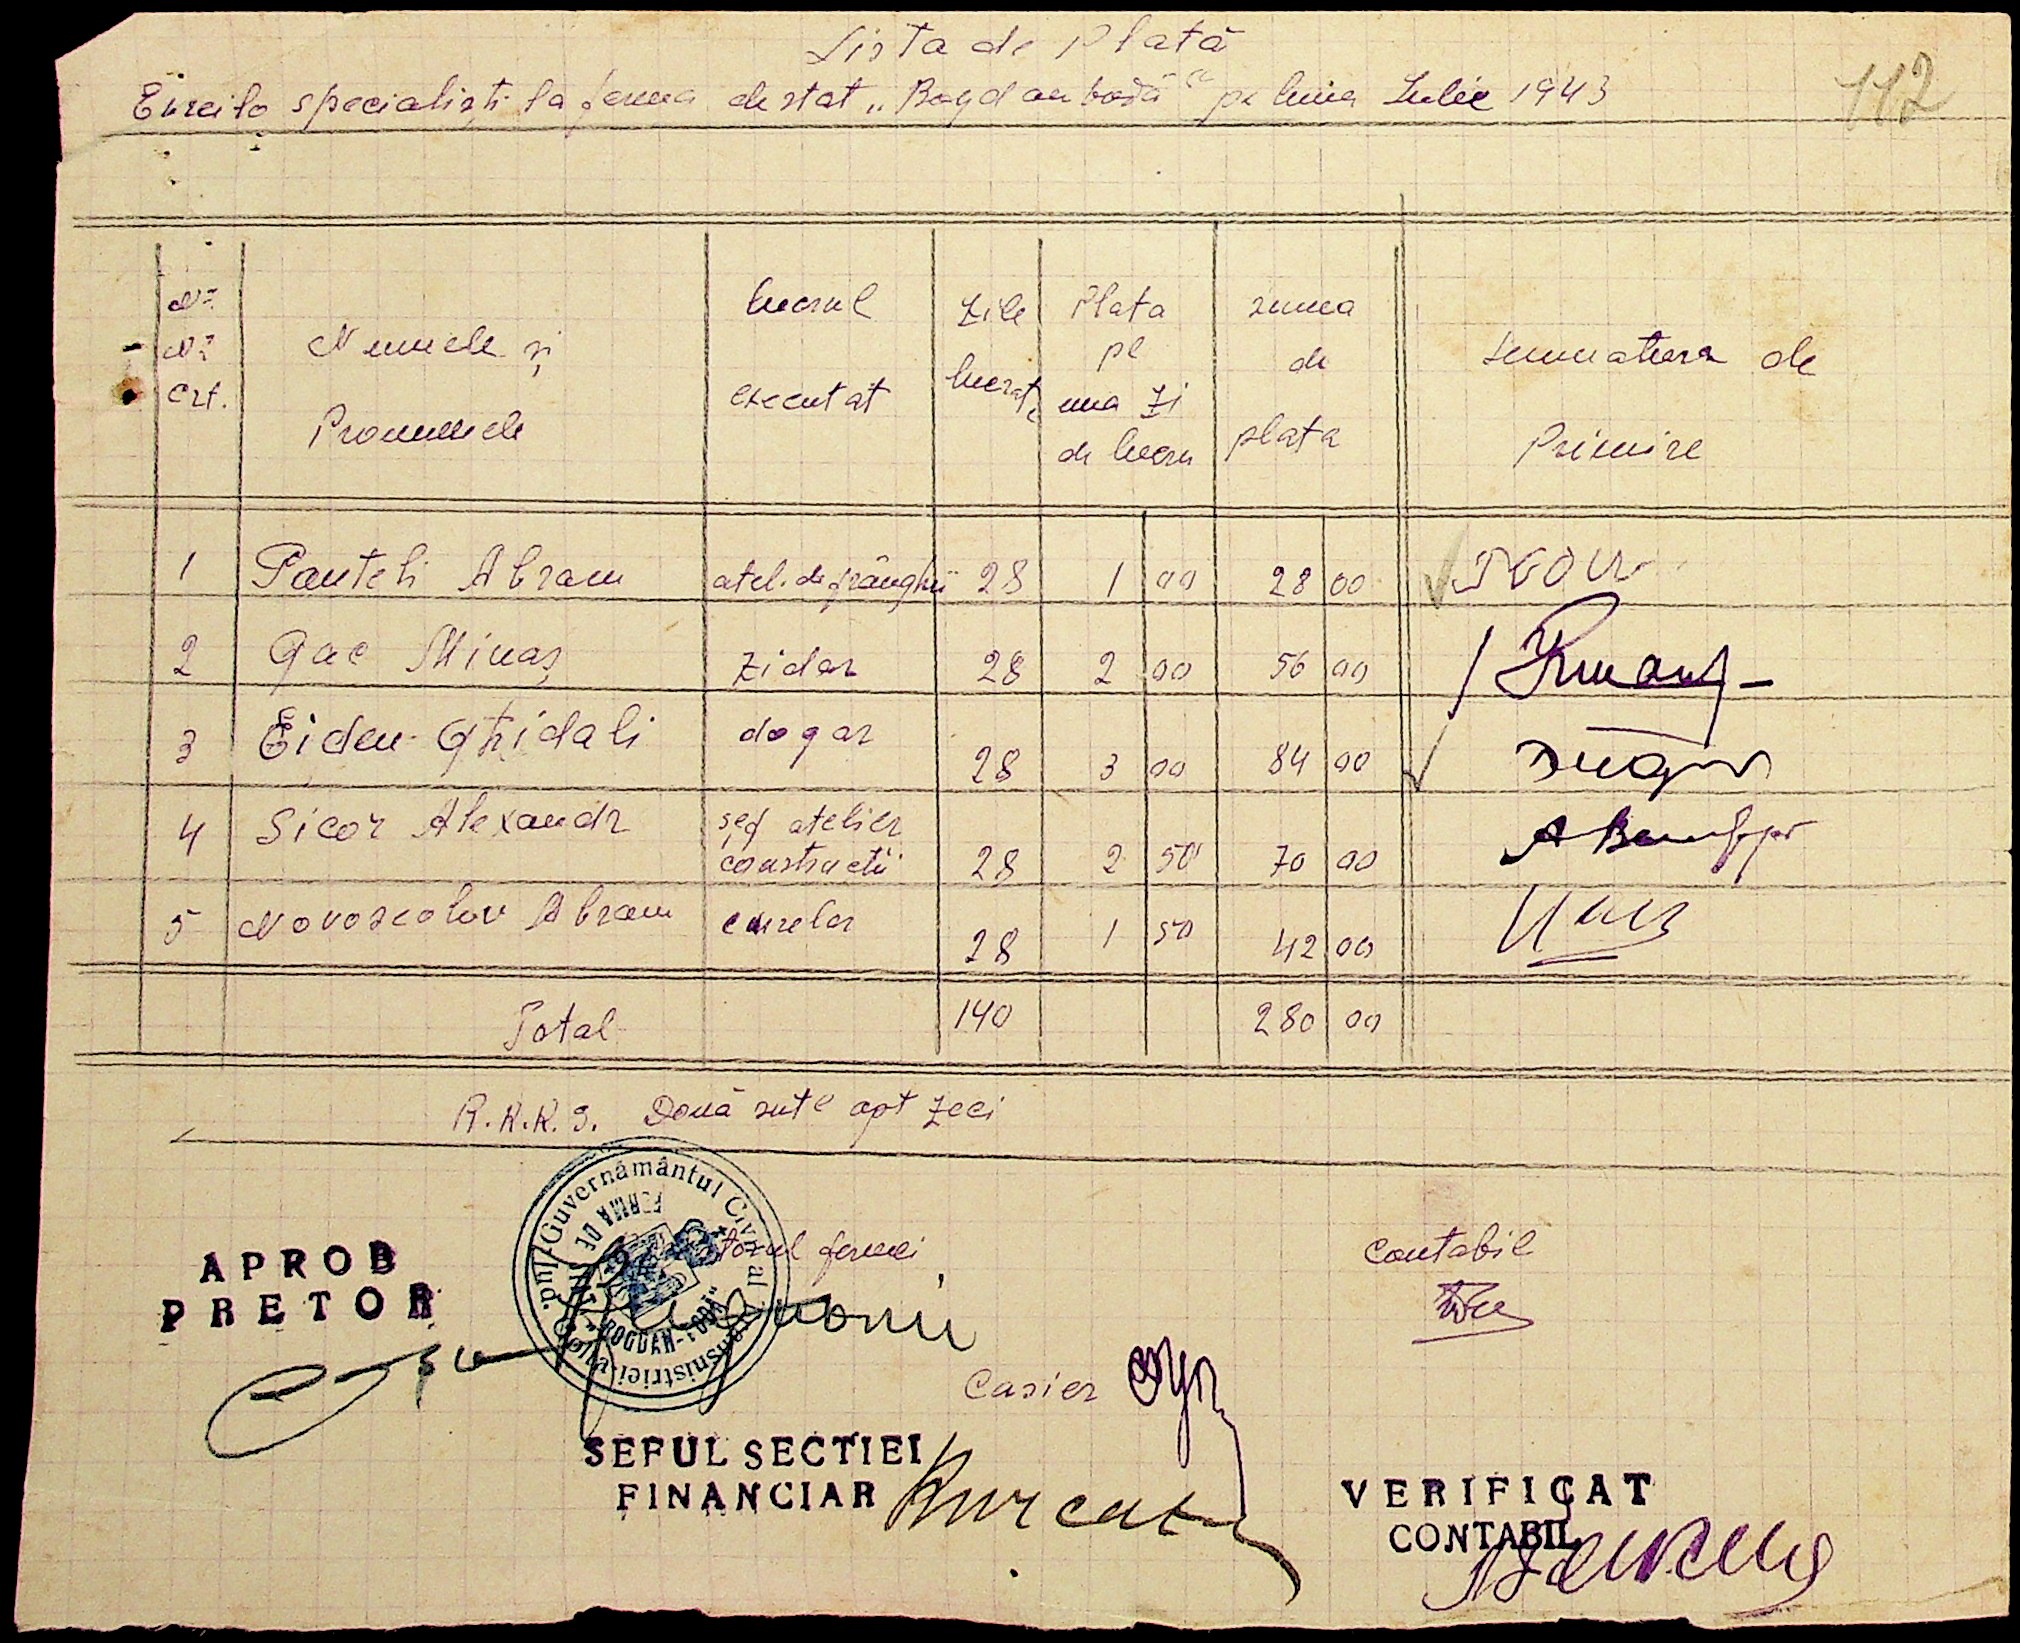 Lista de Plată
112
specialiști la ferma de stat „Bogdan Vodă“ pe luna Iulie 1943
Nr. Nr. Crt.
Numele și Pronumele
lucrul executat
Zile lucrate
Plata pe una zi de lucru
suma de plata
semnatura de Primire
1 Panteli Abram atel. de frânghii 28 1 00 28 00
2 Gac Minaș zidar 28 2 00 56 00
3 Eiden Ghidali dogar 28 3 00 84 00
4 Sicor Alexandr șef atelier constructii 28 2 50 70 00
5 Novoseolov Abram curelar 28 1 50 42 00
Total 140 280 00
R.K.K.S. Două sute opt zeci
Guvernământul Civil al Transnistriei
FERMA DE STAT
"BOGDAN-VODĂ"
fermei
Contabil
APROB
PRETOR
Casier
SEFUL SECTIEI
FINANCIAR
VERIFICAT
CONTABIL